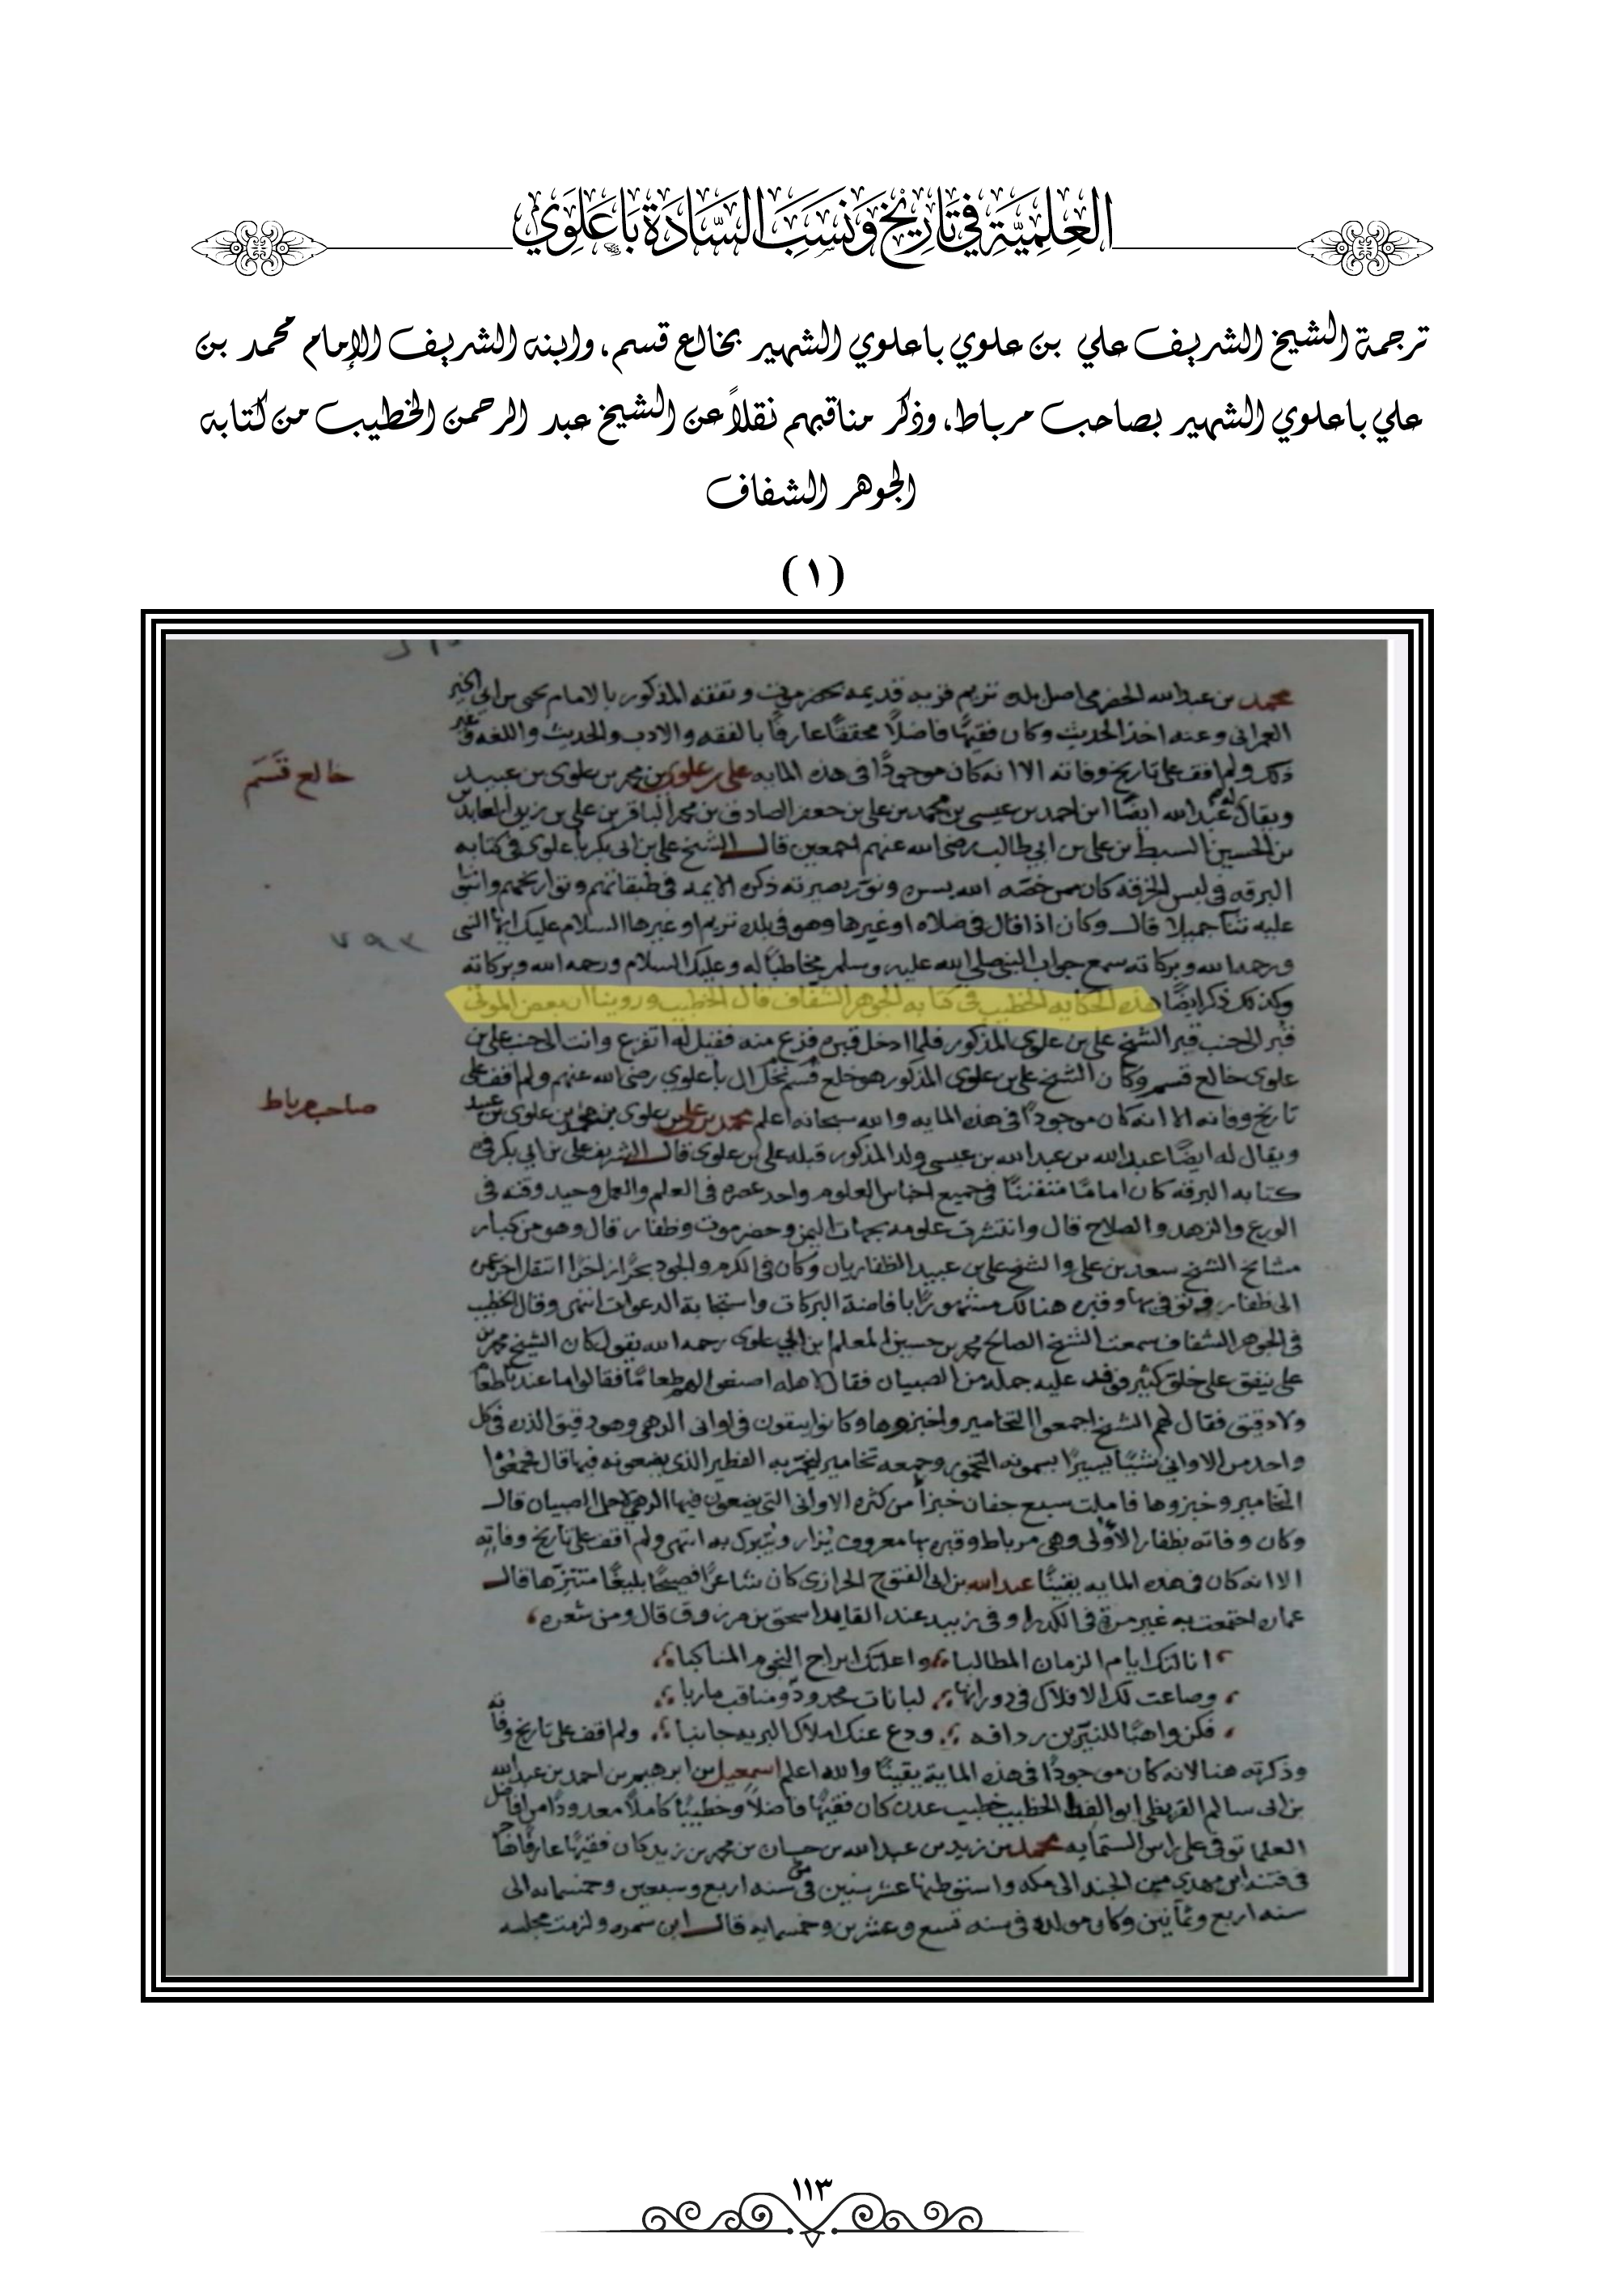 العِلْمِيَّةِ فِي تَارِيْخِ وَنَسَبِ السَّادَةِ بَاعَلَوِي
ترجمة الشيخ الشريف علي بن علوي باعلوي الشهير بخالع قسم، وابنه الشريف الإمام محمد بن
علي باعلوي الشهير بصاحب مرباط، وذكر مناقبهم نقلاً عن الشيخ عبد الرحمن الخطيب من كتابه
الجوهر الشفاف
(١)
محمد بن عبدالله الحضرمي اصل بلده تريم قريه قديمه بحضرموت وتفقه المذكور بالامام يحيى بن ابي الخير
العمراني وعنه اخذ الحديث وكان فقيهًا فاضلًا محققًا عارفًا بالفقه والادب والحديث واللغه وغير
ذلك ولم اقف على تاريخ وفاته الا انه كان موجودًا في هذه المايه علي بن علوي بن محمد بن علوي بن عبيد
خالع قَسَم
ويقال له عبدالله ايضًا ابن احمد بن عيسى بن محمد بن علي بن جعفر الصادق بن محمد الباقر بن علي بن زين العابدين
بن الحسين السبط بن علي بن ابي طالب رضي الله عنهم اجمعين قال الشيخ علي بن ابي بكر باعلوي في كتابه
البرقه في لبس الخرقه كان ممن خصه الله بسره ونور بصيرته ذكره الايمه في طبقاتهم وتواريخهم واثنوا
عليه ثناً جميلا قال وكان اذا قال في صلاه او غيرها وهو في بلده تريم او غيرها السلام عليك ايها النبي
٧٩٣
ورحمة الله وبركاته سمع جواب النبي صلى الله عليه وسلم مخاطبًا له وعليك السلام ورحمه الله وبركاته
وكذلك ذكر ايضًا هذه الحكايه الخطيب في كتابه الجوهر الشفاف قال الخطيب وروينا ان بعض الموتى
قبر الى جنب قبر الشيخ علي بن علوي المذكور فلما ادخل قبره فزع منه فقيل له اتفزع وانت الى جنب علي بن
علوي خالع قسم وكان الشيخ علي بن علوي المذكور هو خلع قسم نخل ال باعلوي رضي الله عنهم ولم اقف على
صاحب مرباط
تاريخ وفاته الا انه كان موجودًا في هذه المايه والله سبحانه اعلم محمد بن علي بن علوي بن محمد بن علوي بن عبيد
ويقال له ايضًا عبدالله بن عبدالله بن عيسى ولد المذكور قبله علي بن علوي قال الشريف علي بن ابي بكر في
كتابه البرقه كان امامًا متفننًا في جميع اجناس العلوم واحد عصره في العلم والعمل وحيد وقته في
الورع والزهد والصلاح قال وانتشرت علومه بجهات اليمن وحضرموت وظفار قال وهو من كبار
مشايخ الشيخ سعد بن علي والشيخ علي بن عبيد الظفاريان وكان في الكرم والجود بحرًا زاخرًا انتقل اخر عمره
الى ظفار وتوفي بها وقبره هنالك مشهورًا بافاضة البركات واستجابة الدعوات انتهى وقال الخطيب
في الجوهر الشفاف سمعت الشيخ الصالح محمد بن حسين المعلم ابن ابي علوي رحمه الله يقول كان الشيخ محمد بن
علي ينفق على خلق كثير فوفد عليه جمله من الصبيان فقال لاهله اصنعوا لهم طعامًا فقالوا ما عندنا طعام
ولا دقيق فقال لهم الشيخ اجمعوا التخامير واخبزوها وكانوا يبقون في اواني الرهي وهو دقيق الذره في كل
واحد من الاواني شيًا يسيرًا يسمونه التخمور وجمعه تخامير ليخمر به الفطير الذي يضعونه فيها قال فجمعوا
التخامير وخبزوها فاملت سبع جفان خبزًا من كثره الاواني التي يضعون فيها الرهي لاجل الصبيان قال
وكان وفاته بظفار الاولى وهي مرباط وقبره بها معروف يزار ويتبرك به انتهى ولم اقف على تاريخ وفاته
الا انه كان في هذه المايه يقينًا عبدالله بن ابي الفتوح الحرازي كان شاعرًا فصيحًا بليغًا قال
عماره اجتمعت به غير مرة في الكدرا وفي زبيد عند القايد اسحق بن مرزوق قال ومن شعره
انالتك ايام الزمان المطالبا واعلتك ابراج النجوم المناكبا
وصاغت لك الافلاك في دورانها
ودع عنك املاك البريه جانبا ولم اقف على تاريخ وفاته
وذكرته هنا لانه كان موجودًا في هذه الماية يقينًا والله اعلم اسمعيل بن ابرهيم بن احمد بن عبدالله
بن ابي سالم القريظي ابو الفضل الخطيب خطيب عدن كان فقيهًا فاضلاً وخطيبًا كاملاً معدودًا من افاضل
العلما توفي على راس الستمايه محمد بن زيد بن عبدالله بن حسان بن محمد بن زيد كان فقيهًا عارفًا
في فتنه ابن مهدي من الجند الى مكه واستوطنها عشر سنين من سنه اربع وسبعين وخمسمايه الى
سنه اربع وثمانين وكان مولده في سنه تسع وعشرين وخمسمايه قال ابن سمره ولزمت مجلسه
١١٣